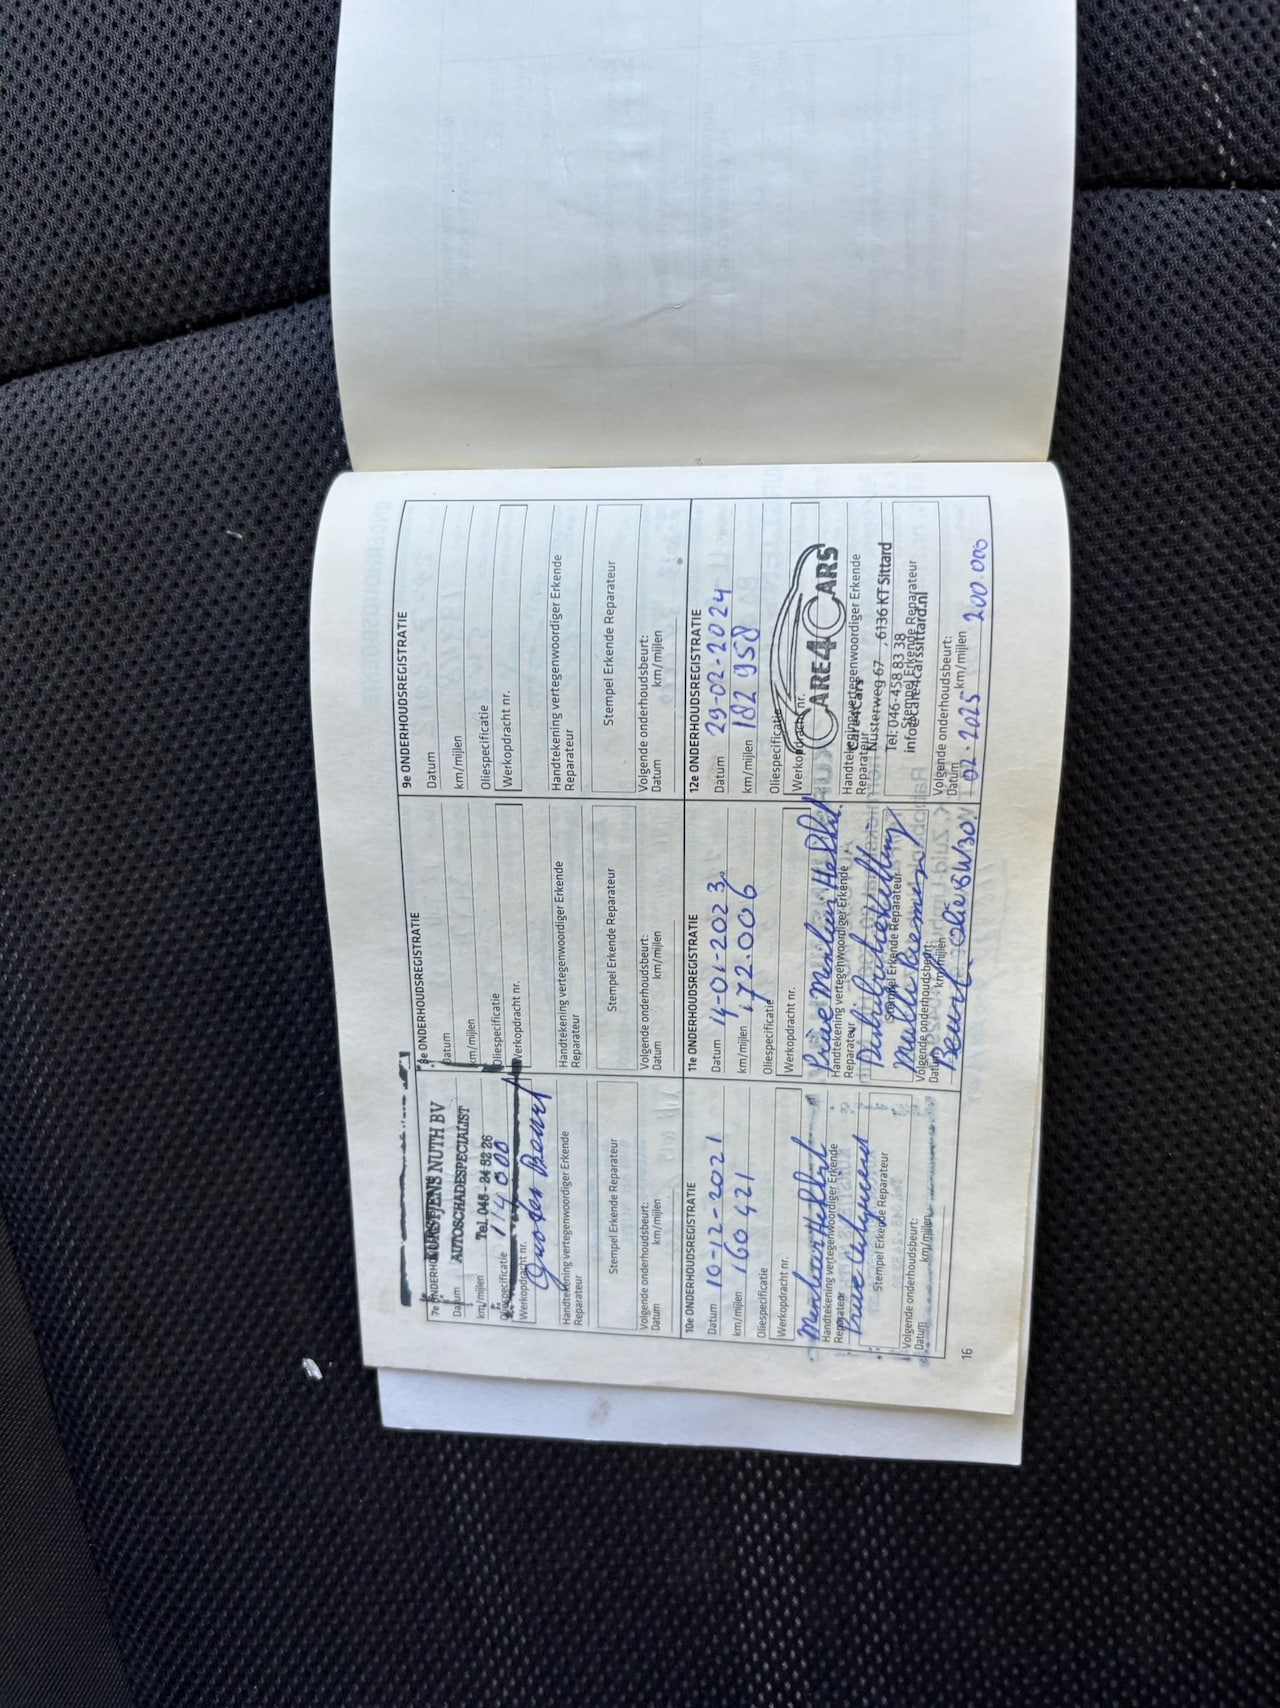 7e ONDERHO
KURSTJENS NUTH BV
AUTOSCHADESPECIALIST
Datum
Tel. 045 - 24 52 26
km/mijlen
114000
Oliespecificatie
Werkopdracht nr.
Handtekening vertegenwoordiger Erkende
Reparateur
Stempel Erkende Reparateur
Volgende onderhoudsbeurt:
Datum km/mijlen
8e ONDERHOUDSREGISTRATIE
Datum
km/mijlen
Oliespecificatie
Werkopdracht nr.
Handtekening vertegenwoordiger Erkende
Reparateur
Stempel Erkende Reparateur
Volgende onderhoudsbeurt:
Datum km/mijlen
9e ONDERHOUDSREGISTRATIE
Datum
km/mijlen
Oliespecificatie
Werkopdracht nr.
Handtekening vertegenwoordiger Erkende
Reparateur
Stempel Erkende Reparateur
Volgende onderhoudsbeurt:
Datum km/mijlen
10e ONDERHOUDSREGISTRATIE
Datum 10-12-2021
km/mijlen 160 421
Oliespecificatie
Werkopdracht nr.
Handtekening vertegenwoordiger Erkende
Reparateur
Stempel Erkende Reparateur
Volgende onderhoudsbeurt:
Datum km/mijlen
11e ONDERHOUDSREGISTRATIE
Datum 14-01-2023
km/mijlen 172.006
Oliespecificatie
Werkopdracht nr.
Handtekening vertegenwoordiger Erkende
Reparateur
Stempel Erkende Reparateur
Volgende onderhoudsbeurt:
Datum km/mijlen
Beurt Olie 5W30
12e ONDERHOUDSREGISTRATIE
Datum 29-02-2024
km/mijlen 182 958
Oliespecificatie
Werkopdracht nr.
CARE4CARS
Handtekening vertegenwoordiger Erkende
Care4Cars
Reparateur
Nusterweg 67 , 6136 KT Sittard
Tel: 046-458 83 38
Stempel Erkende Reparateur
info@care4carssittard.nl
Volgende onderhoudsbeurt:
Datum 02-2025 km/mijlen 200.000
16